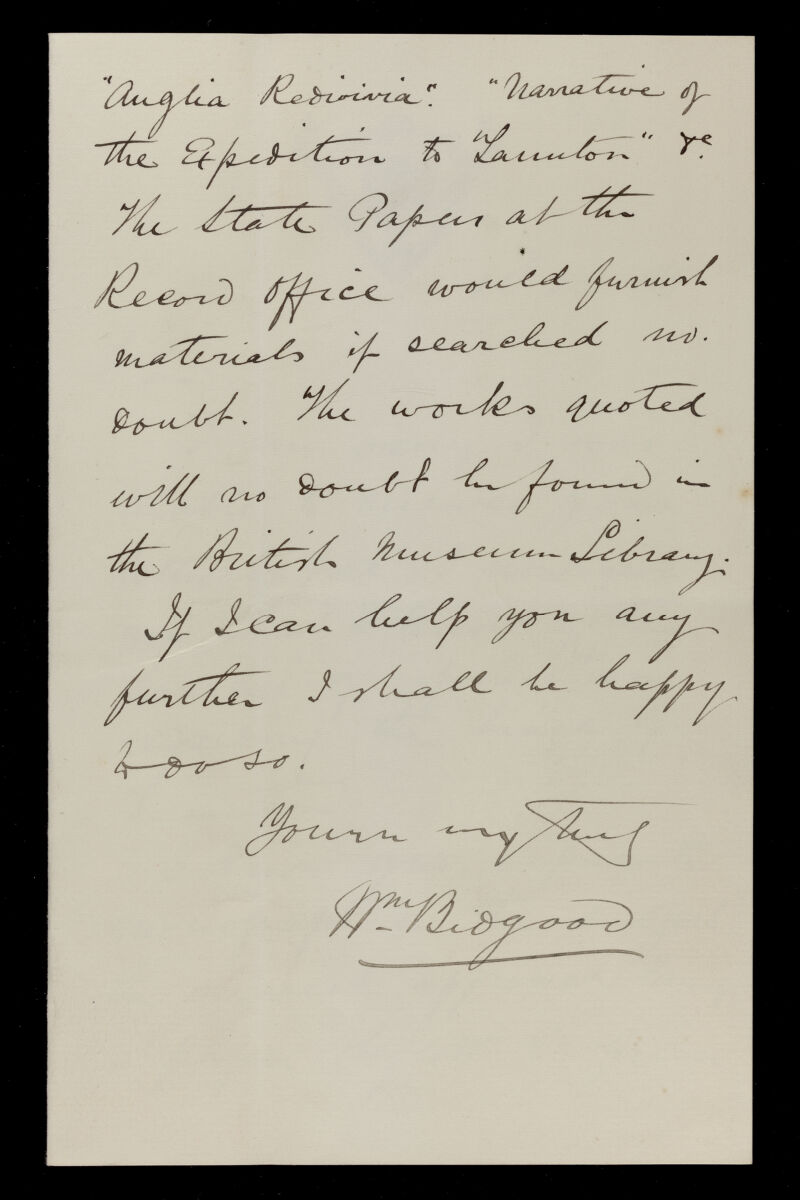 "Anglia Redivivia". "Narrative of
the Expedition to Taunton" &c.
The State Papers at the
Record Office would furnish
materials if searched no.
doubt. The works quoted
will no doubt be found in
the British Museum Library.
If I can help you any
further I shall be happy
to do so.
Yours very truly
Wm Bidgood